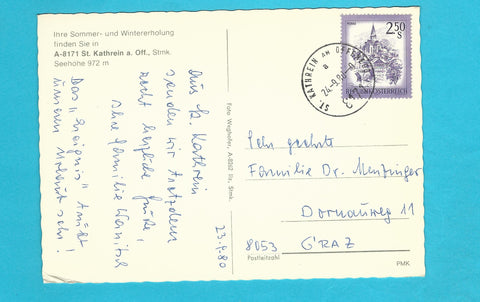 Ihre Sommer- und Wintererholung
finden Sie in
A-8171 St. Kathrein a. Off., Stmk.
Seehöhe 972 m
Aus St. Kathrein
senden wir trotzdem
recht herzliche Grüße,
Ihre Familie
Das "Ereignis" trübt
unseren Urlaub sehr!
23.9.80
Foto Wieghofer, A-8262 Ilz, Stmk.
ST. KATHREIN AM OFFENEGG
a
8171
2.50
S
REPUBLIK ÖSTERREICH
Sehr geehrte
Familie Dr. Menzinger
Dornauweg 11
8053 GRAZ
Postleitzahl
PMK